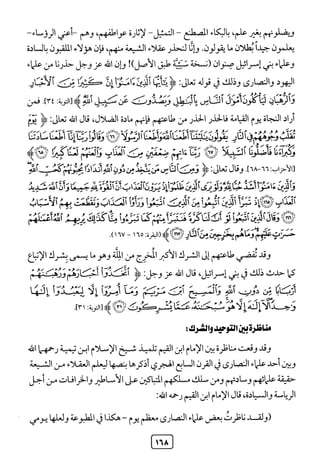 ويضلونهم بغير علم، بالبكاء المصطنع - التمثيل - لإثارة عواطفهم، وهم -أعني الرؤساء-
يعلمون جيداً بُطلان ما يقولون. وإنّا لنحذر عقلاء الشيعة منهم، فإن هؤلاء الملقبون بالسادة
وعلماء بني إسرائيل صِنوان (نسخة سَيِّئَة طبق الأصل)! وإن الله عز وجل حذرنا من علماء
اليهود والنصارى وذلك في قوله تعالى: ﴿ يَٰٓأَيُّهَا ٱلَّذِينَ ءَامَنُوٓاْ إِنَّ كَثِيرٗا مِّنَ ٱلۡأَحۡبَارِ
وَٱلرُّهۡبَانِ لَيَأۡكُلُونَ أَمۡوَٰلَ ٱلنَّاسِ بِٱلۡبَٰطِلِ وَيَصُدُّونَ عَن سَبِيلِ ٱللَّهِ﴾ [التوبة: ٣٤]. فمن
أراد النجاة يوم القيامة فالحذر الحذر من طاعتهم فإنهم مادة الضلال، قال الله تعالى: ﴿ يَوۡمَ
تُقَلَّبُ وُجُوهُهُمۡ فِي ٱلنَّارِ يَقُولُونَ يَٰلَيۡتَنَآ أَطَعۡنَا ٱللَّهَ وَأَطَعۡنَا ٱلرَّسُولَا۠ ﴿٦٦﴾ وَقَالُواْ رَبَّنَآ إِنَّآ أَطَعۡنَا سَادَتَنَا
وَكُبَرَآءَنَا فَأَضَلُّونَا ٱلسَّبِيلَا۠ ﴿٦٧﴾ رَبَّنَآ ءَاتِهِمۡ ضِعۡفَيۡنِ مِنَ ٱلۡعَذَابِ وَٱلۡعَنۡهُمۡ لَعۡنٗا كَبِيرٗا ﴿٦٨﴾﴾
[الأحزاب: ٦٦-٦٨]. وقال تعالى: ﴿ وَمِنَ ٱلنَّاسِ مَن يَتَّخِذُ مِن دُونِ ٱللَّهِ أَندَادٗا يُحِبُّونَهُمۡ كَحُبِّ ٱللَّهِۖ
وَٱلَّذِينَ ءَامَنُوٓاْ أَشَدُّ حُبّٗا لِّلَّهِۗ وَلَوۡ يَرَى ٱلَّذِينَ ظَلَمُوٓاْ إِذۡ يَرَوۡنَ ٱلۡعَذَابَ أَنَّ ٱلۡقُوَّةَ لِلَّهِ جَمِيعٗا وَأَنَّ ٱللَّهَ شَدِيدُ
ٱلۡعَذَابِ ﴿١٦٥﴾ إِذۡ تَبَرَّأَ ٱلَّذِينَ ٱتُّبِعُواْ مِنَ ٱلَّذِينَ ٱتَّبَعُواْ وَرَأَوُاْ ٱلۡعَذَابَ وَتَقَطَّعَتۡ بِهِمُ ٱلۡأَسۡبَابُ
﴿١٦٦﴾ وَقَالَ ٱلَّذِينَ ٱتَّبَعُواْ لَوۡ أَنَّ لَنَا كَرَّةٗ فَنَتَبَرَّأَ مِنۡهُمۡ كَمَا تَبَرَّءُواْ مِنَّاۗ كَذَٰلِكَ يُرِيهِمُ ٱللَّهُ أَعۡمَٰلَهُمۡ
حَسَرَٰتٍ عَلَيۡهِمۡۖ وَمَا هُم بِخَٰرِجِينَ مِنَ ٱلنَّارِ ﴿١٦٧﴾﴾ (البقرة: ١٦٥ - ١٦٧).
وقد تُفضي طاعتهم إلى الشرك الأكبر المُخرج من المِلَّة وهو ما يسمى بشرك الاتباع
كما حدث ذلك في بني إسرائيل، قال الله عز وجل: ﴿ ٱتَّخَذُوٓاْ أَحۡبَارَهُمۡ وَرُهۡبَٰنَهُمۡ
أَرۡبَابٗا مِّن دُونِ ٱللَّهِ وَٱلۡمَسِيحَ ٱبۡنَ مَرۡيَمَ وَمَآ أُمِرُوٓاْ إِلَّا لِيَعۡبُدُوٓاْ إِلَٰهٗا
وَٰحِدٗاۖ لَّآ إِلَٰهَ إِلَّا هُوَۚ سُبۡحَٰنَهُۥ عَمَّا يُشۡرِكُونَ ﴿٣١﴾﴾ [التوبة: ٣١].
مناظرة بين التوحيد والشرك:
وقد وقعت مناظرة بين الإمام ابن القيم تلميذ شيخ الإسلام ابن تيمية رحمهما الله
وبين أحد علماء النصارى في القرن السابع الهجري أذكرها بنصها ليعلم العقلاء من الشيعة
حقيقة علمائهم وسادتهم ومن سلك مسلكهم المتباكين على الأساطير والخرافات من أجل
الرياسة والسيادة، قال الإمام ابن القيم رحمه الله:
(ولقد ناظرتُ بعض علماء النصارى معظم يوم - هكذا في المطبوعة ولعلها يومي
١٦٨